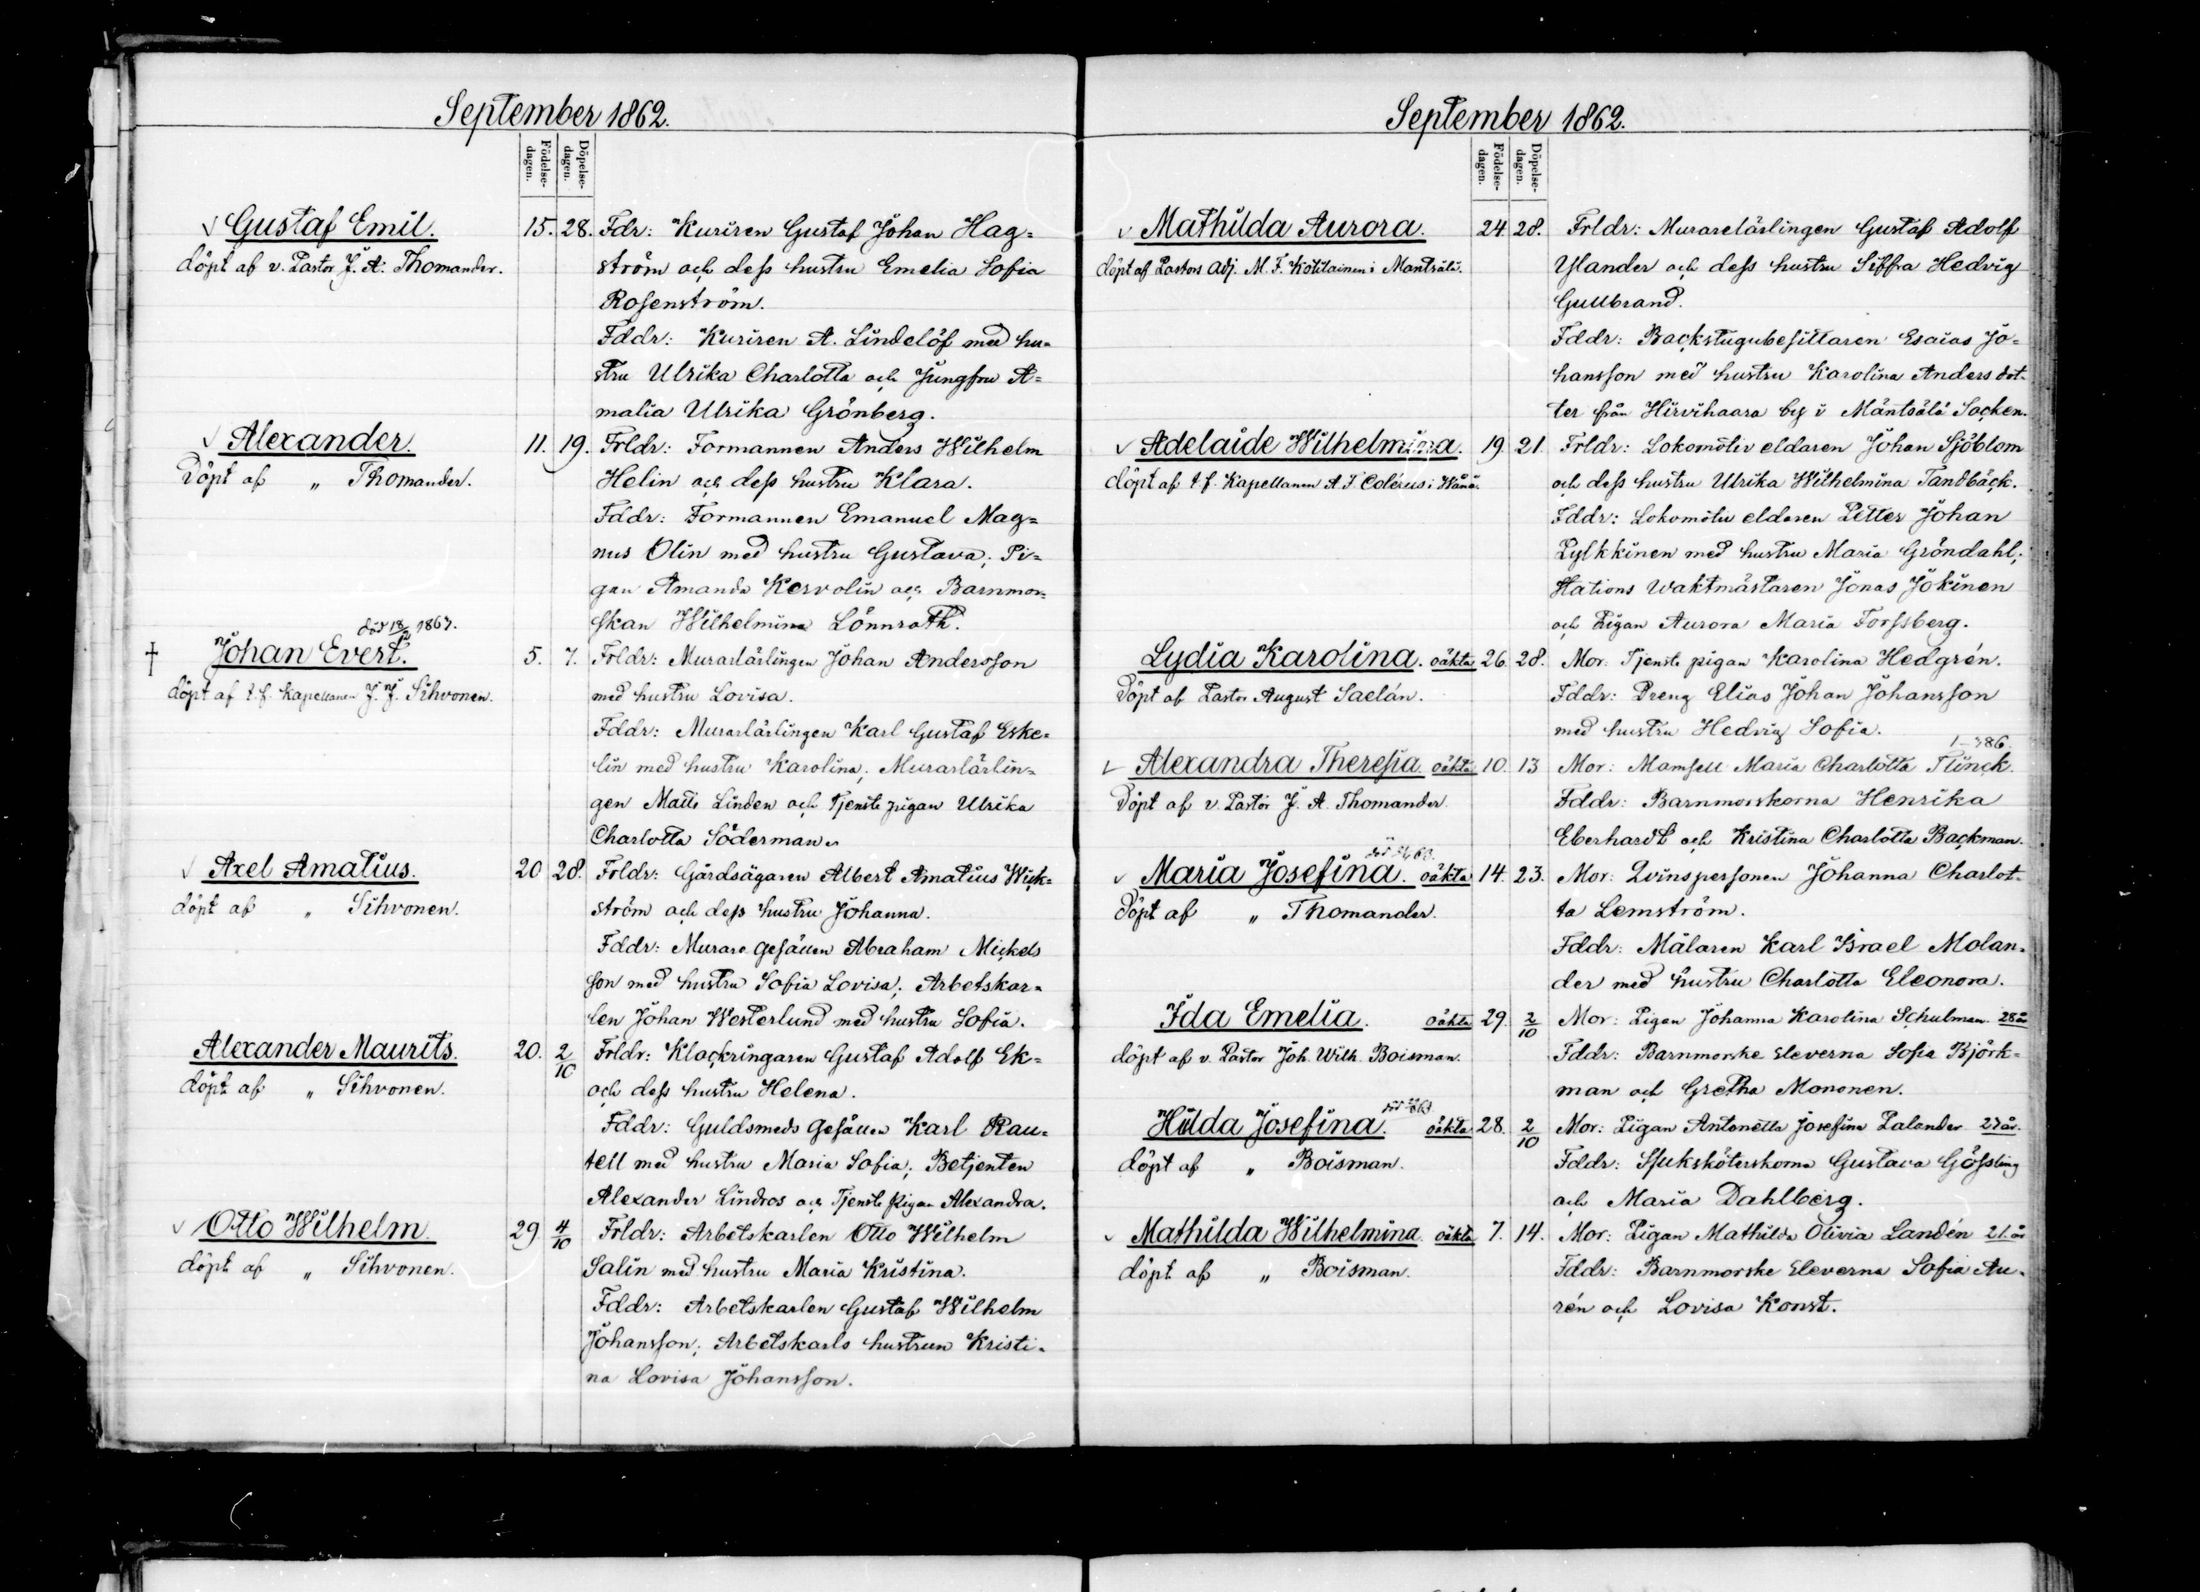 September 1862.
Födelse-dagen.
Döpelse-dagen.
Gustaf Emil. 15. 28. Fdr: Kuriren Gustaf Johan Hag=
döpt af v. Pastor J. A. Thomander. ström och dess hustru Emelia Sofia
Rosenström.
Fddr: Kuriren A. Lindelöf med hu=
stru Ulrika Charlotta och Jungfru A=
malia Ulrika Grönberg.
Alexander. 11. 19. Frldr: Formannen Anders Wilhelm
Döpt af „ Thomander. Helin och dess hustru Klara.
Fddr: Formannen Emanuel Mag=
nus Olin med hustru Gustava; Pi=
gan Amanda Kervolin och Barnmor=
skan Wilhelmina Lönnroth.
död 18/12 1863.
† Johan Evert. 5. 7. Frldr: Murarlärlingen Johan Andersson
döpt af t.f. Kapellanen J. J. Sihvonen. med hustru Lovisa.
Fddr: Murarlärlingen Karl Gustaf Eske=
lin med hustru Karolina; Murarlärlin=
gen Matts Linden och Tjenste pigan Ulrika
Charlotta Söderman.
Axel Amatius. 20 28. Frldr: Gårdsägaren Albert Amatius Wick=
döpt af „ Sihvonen. ström och dess hustru Johanna.
Fddr: Murare gesällen Abraham Mickels
son med hustru Sofia Lovisa; Arbetskar=
len Johan Westerlund med hustru Sofia.
Alexander Maurits. 20. 2/10 Frldr: Klockringaren Gustaf Adolf Ek=
döpt af „ Sihvonen. och dess hustru Helena.
Fddr: Guldsmeds gesällen Karl Rau=
tell med hustru Maria Sofia; Betjenten
Alexander Lindros och Tjenste pigan Alexandra.
Otto Wilhelm. 29 4/10 Frldr: Arbetskarlen Otto Wilhelm
döpt af „ Sihvonen. Salin med hustru Maria Kristina.
Fddr: Arbetskarlen Gustaf Wilhelm
Johansson; Arbetskarls hustrun Kristi=
na Lovisa Johansson.
September 1862.
Födelse-dagen.
Döpelse-dagen.
Mathilda Aurora. 24 28. Frldr: Murarelärlingen Gustaf Adolf
döpt af Pastors Adj. M. F. Kotilainen i Mäntsälä. Ylander och dess hustru Siffra Hedvig
Gullbrand.
Fddr: Backstugubesittaren Esaias Jo=
hansson med hustru Karolina Anders dot=
ter från Hirvihaara by i Mäntsälä Socken.
Adelaide Wilhelmina. 19 21. Frldr: Lokomotiv eldaren Johan Sjöblom
döpt af t.f. Kapellanen A. F. Colerus i Wånå. och dess hustru Ulrika Wilhelmina Tandbäck.
Fddr: Lokomotiv eldaren Petter Johan
Pylkkinen med hustru Maria Gröndahl;
Stations waktmästaren Jonas Jokinen
och Pigan Aurora Maria Forssberg.
Lydia Karolina. oäkta 26. 28. Mor: Tjenste pigan Karolina Hedgrén.
Döpt af Pastor August Saelán. Fddr: Dreng Elias Johan Johansson
med hustru Hedvig Sofia.
I – 386.
Alexandra Theresia oäkta 10. 13 Mor: Mamsell Maria Charlotta Flinck.
Döpt af v. Pastor J. A. Thomander. Fddr: Barnmorskorna Henrika
Eberhardt och Kristina Charlotta Backman.
Maria Josefina. oäkta 14. 23. Mor: Qvinspersonen Johanna Charlot=
Döpt af „ Thomander. ta Lemström.
Fddr: Målaren Karl Israel Molan=
der med hustru Charlotta Eleonora.
Ida Emelia. oäkta 29. 2/10 Mor: Pigan Johanna Karolina Schulman 28 år
döpt af v. Pastor Joh. Wilh. Boisman. Fddr: Barnmorske eleverna Sofia Björk=
man och Gretha Mononen.
Hilda Josefina. oäkta 28. 2/10 Mor: Pigan Antonetta Josefina Palander 27 år.
döpt af „ Boisman. Fddr: Sjuksköterskorna Gustava Gössling
och Maria Dahlberg.
Mathilda Wilhelmina. oäkta 7. 14. Mor: Pigan Mathilda Olivia Landén 21 år
döpt af „ Boisman. Fddr: Barnmorske eleverna Sofia Au=
rén och Lovisa Konst.